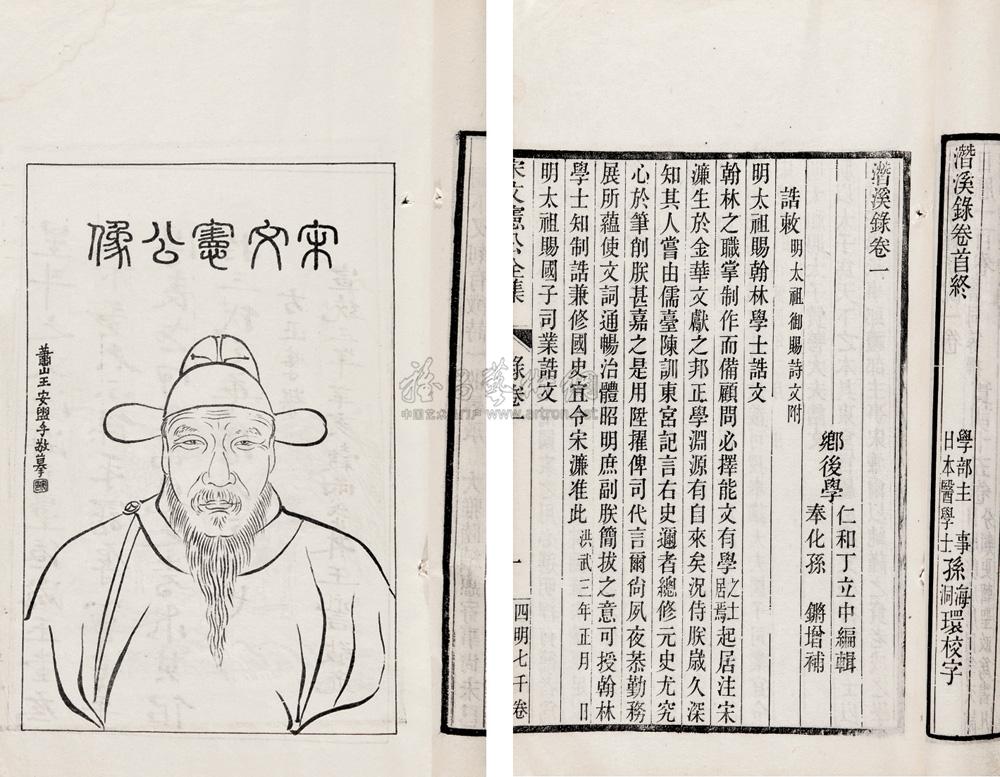 宋文憲公像
蕭山王安與手敬摹
潛溪錄卷首終
學部主事孫海環校字
日本醫學士孫洞
潛溪錄卷一
鄉後學
仁和丁立中編輯
奉化孫鏘增補
誥敕 明太祖御賜詩文附
明太祖賜翰林學士誥文
翰林之職掌制作而備顧問必擇能文有學之士居焉起居注宋
濂生於金華文獻之邦正學淵源有自來矣況侍朕歲久深
知其人嘗由儒臺陳訓東宮記言右史邇者總修元史尤究
心於筆削朕甚嘉之是用陞擢俾司代言爾尚夙夜恭勤務
展所蘊使文詞通暢治體昭明庶副朕簡拔之意可授翰林
學士知制誥兼修國史宜令宋濂准此 洪武三年正月 日
明太祖賜國子司業誥文
宋文憲公全集 錄卷一 一 四明七千卷
中国艺术品门户 www.artron.net